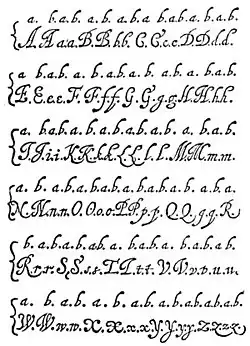 a. b.a.b. a. b. a.b. a. b. a.b. a.b.a.b.
A.A.a.a.B.B.b.b. C.C.c.c.D.D.d.d.
a. b.a.b. a. b. a.b. a. b. a.b. a. b. a.b.
E.E.e.e.F.F.f.f.G.G.g.g.H.H.h.h.
a. b.a.b. a.b.a.b.a.b.a.b. a. b. a.b.
I.I.i.i.K.K.k.k.L.L.l.l.M.M.m.m.
a. b. a.b. a.b.a.b.a.b.a.b. a. b. a.b. a.
N.N.n.n.O.O.o.o.P.P.p.p.Q.Q.q.q.R
b. a.b.a.b.a.b. a. b. a.b. a. b. a.b.a.b.
R.r.r.S.S.s.s.T.T.t.t.V.V.v.v.u.u.
a. b. a.b. a. b. a.b. a. b. a.b. a.b.a.b.
W.W.w.w.X.X.x.x.Y.Y.y.y.Z.Z.z.z.